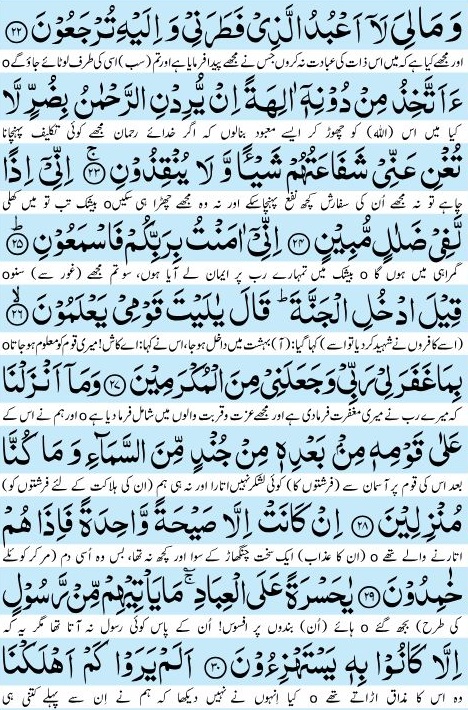 وَمَا لِیَ لَاۤ اَعۡبُدُ الَّذِیۡ فَطَرَنِیۡ وَ اِلَیۡہِ تُرۡجَعُوۡنَ ﴿۲۲﴾
اور مجھے کیا ہے کہ میں اس ذات کی عبادت نہ کروں جس نے مجھے پیدا فرمایا ہے اور تم (سب) اسی کی طرف لوٹائے جاؤ گے o
ءَاَتَّخِذُ مِنۡ دُوۡنِہٖۤ اٰلِہَۃً اِنۡ یُّرِدۡنِ الرَّحۡمٰنُ بِضُرٍّ لَّا
کیا میں اس (اللہ) کو چھوڑ کر ایسے معبود بنالوں کہ اگر خدائے رحمان مجھے کوئی تکلیف پہنچانا
تُغۡنِ عَنِّیۡ شَفَاعَتُہُمۡ شَیۡـًٔا وَّ لَا یُنۡقِذُوۡنِ ﴿ۚ۲۳﴾ اِنِّیۡۤ اِذًا
چاہے تو نہ مجھے اُن کی سفارش کچھ نفع پہنچا سکے اور نہ وہ مجھے چھڑا ہی سکیں o بیشک تب تو میں کھلی
لَّفِیۡ ضَلٰلٍ مُّبِیۡنٍ ﴿۲۴﴾ اِنِّیۡۤ اٰمَنۡتُ بِرَبِّکُمۡ فَاسۡمَعُوۡنِ ﴿ؕ۲۵﴾
گمراہی میں ہوں گا o بیشک میں تمہارے رب پر ایمان لے آیا ہوں، سو تم مجھے (غور سے) سنو o
قِیۡلَ ادۡخُلِ الۡجَنَّۃَ ؕ قَالَ یٰلَیۡتَ قَوۡمِیۡ یَعۡلَمُوۡنَ ﴿ۙ۲۶﴾
(اسے کافروں نے شہید کر دیا تو اسے) کہا گیا: (آ) بہشت میں داخل ہو جا، اس نے کہا: اے کاش! میری قوم کو معلوم ہو جاتا o
بِمَا غَفَرَ لِیۡ رَبِّیۡ وَ جَعَلَنِیۡ مِنَ الۡمُکۡرَمِیۡنَ ﴿۲۷﴾ وَ مَاۤ اَنۡزَلۡنَا
کہ میرے رب نے میری مغفرت فرما دی ہے اور مجھے عزت و قربت والوں میں شامل فرما دیا ہے o اور ہم نے اس کے
عَلٰی قَوۡمِہٖ مِنۡۢ بَعۡدِہٖ مِنۡ جُنۡدٍ مِّنَ السَّمَآءِ وَ مَا کُنَّا
بعد اس کی قوم پر آسمان سے (فرشتوں کا) کوئی لشکر نہیں اتارا اور نہ ہی ہم (ان کی ہلاکت کے لئے فرشتوں کو)
مُنۡزِلِیۡنَ ﴿۲۸﴾ اِنۡ کَانَتۡ اِلَّا صَیۡحَۃً وَّاحِدَۃً فَاِذَا ہُمۡ
اتارنے والے تھے o (ان کا عذاب) ایک سخت چنگھاڑ کے سوا اور کچھ نہ تھا، بس وہ اُسی دم (مر کر کوئلے
خٰمِدُوۡنَ ﴿۲۹﴾ یٰحَسۡرَۃً عَلَی الۡعِبَادِ ۚؔ مَا یَاۡتِیۡہِمۡ مِّنۡ رَّسُوۡلٍ
کی طرح) بجھ گئے o ہائے (اُن) بندوں پر افسوس! اُن کے پاس کوئی رسول نہ آتا تھا مگر یہ کہ
اِلَّا کَانُوۡا بِہٖ یَسۡتَہۡزِءُوۡنَ ﴿۳۰﴾ اَلَمۡ یَرَوۡا کَمۡ اَہۡلَکۡنَا
وہ اس کا مذاق اڑاتے تھے o کیا اِنہوں نے نہیں دیکھا کہ ہم نے اِن سے پہلے کتنی ہی